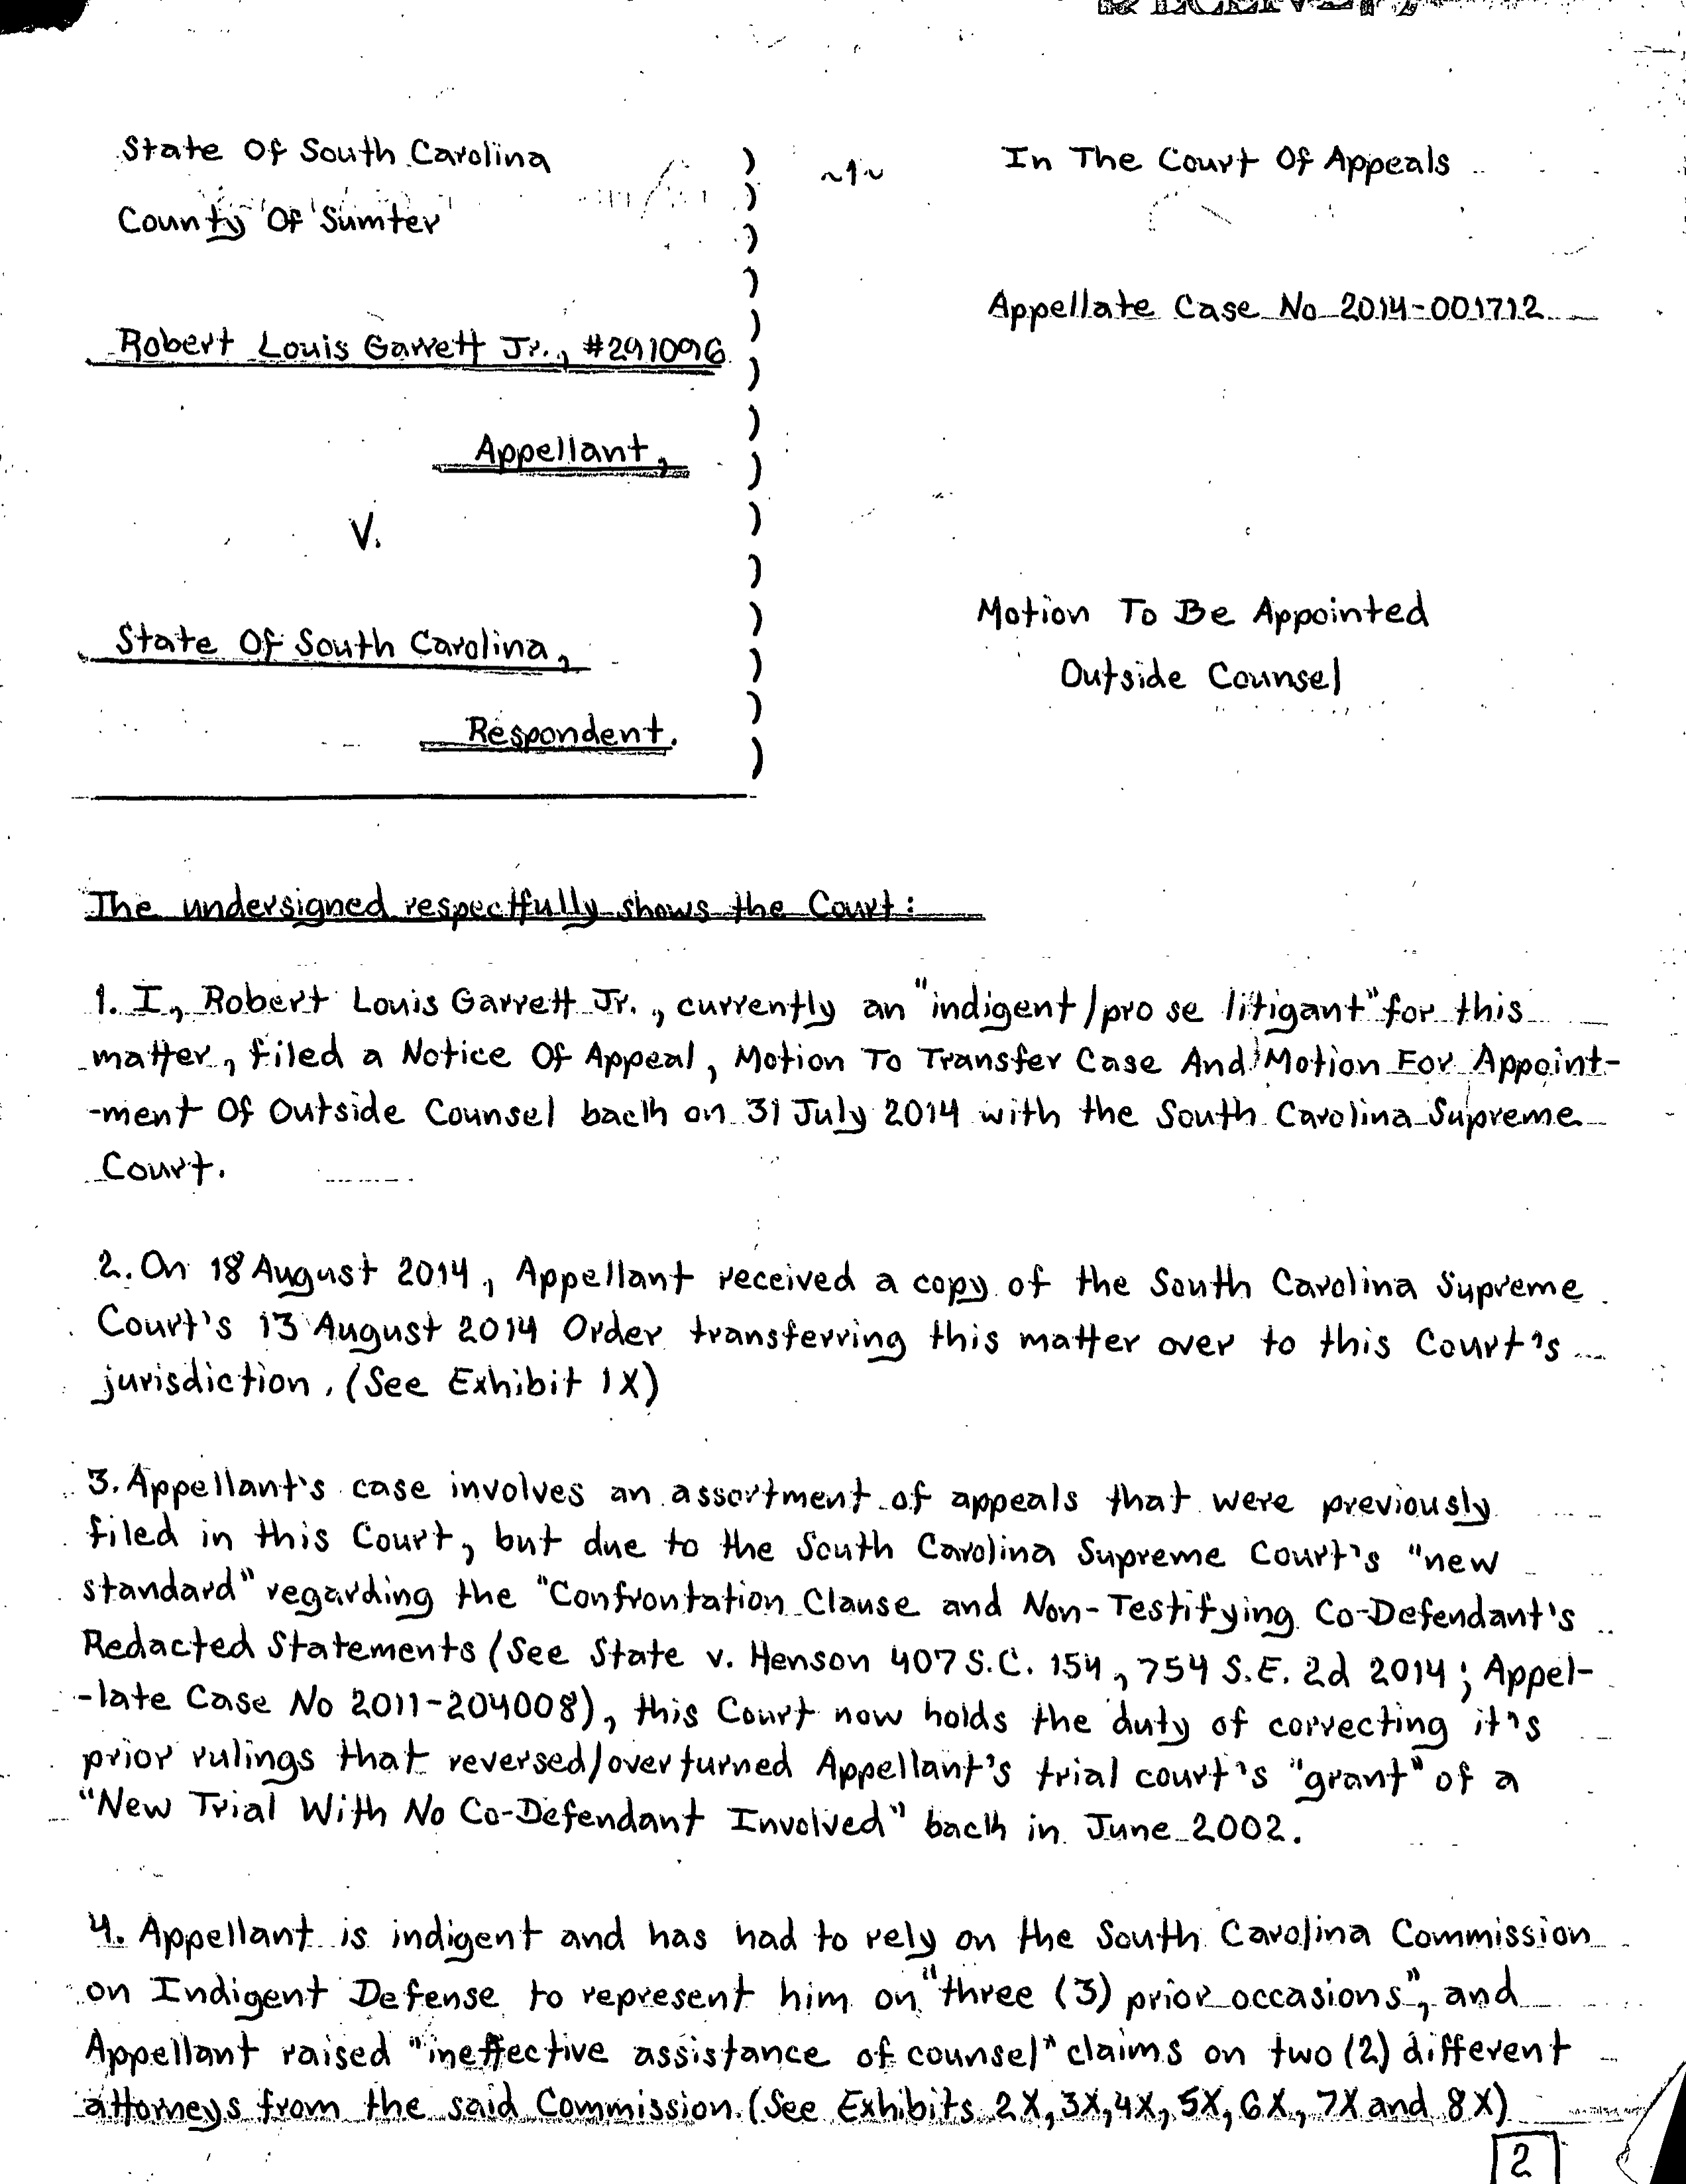 State Of South Carolina
County Of Sumter
Robert Louis Garrett Jr., #291096
Appellant,
V.
State Of South Carolina,
Respondent.
)
)
)
)
)
)
)
)
)
)
)
)
)
)
~1~
In The Court Of Appeals
Appellate Case No 2014-001712
Motion To Be Appointed
Outside Counsel
The undersigned respectfully shows the Court:
1. I, Robert Louis Garrett Jr., currently an "indigent/pro se litigant" for this
matter, filed a Notice Of Appeal, Motion To Transfer Case And Motion For Appoint-
-ment Of Outside Counsel back on 31 July 2014 with the South Carolina Supreme
Court.
2. On 18 August 2014, Appellant received a copy of the South Carolina Supreme
Court's 13 August 2014 Order transferring this matter over to this Court's
jurisdiction. (See Exhibit 1X)
3. Appellant's case involves an assortment of appeals that were previously
filed in this Court, but due to the South Carolina Supreme Court's "new
standard" regarding the "Confrontation Clause and Non-Testifying Co-Defendant's
Redacted Statements (See State v. Henson 407 S.C. 154, 754 S.E. 2d 2014; Appel-
-late Case No 2011-204008), this Court now holds the duty of correcting it's
prior rulings that reversed/overturned Appellant's trial court's "grant" of a
"New Trial With No Co-Defendant Involved" back in June 2002.
4. Appellant is indigent and has had to rely on the South Carolina Commission
on Indigent Defense to represent him on "three (3) prior occasions", and
Appellant raised "ineffective assistance of counsel" claims on two (2) different
attorneys from the said Commission. (See Exhibits 2X, 3X, 4X, 5X, 6X, 7X and 8X)
2